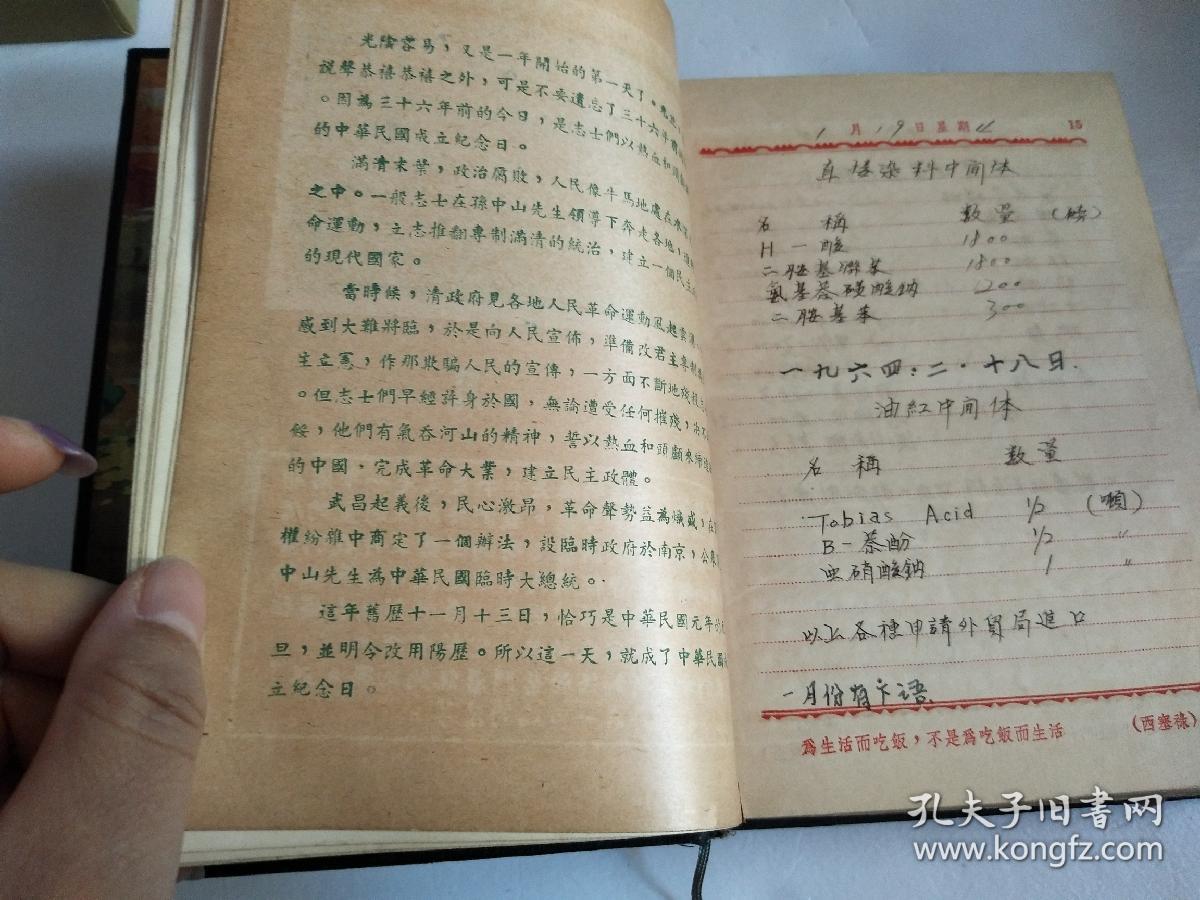 光陰容易，又是一年開始的第一天了。
說聲恭禧恭禧之外，可是不要遺忘了三十六年前
。因為三十六年前的今日，是志士們以熱血和頭顱
的中華民國成立紀念日。
滿清末葉，政治腐敗，人民像牛馬地處在水深
之中。一般志士在孫中山先生領導下奔走各地，
命運動，立志推翻專制滿清的統治，建立一個民主
的現代國家。
當時候，清政府見各地人民革命運動風起雲湧
感到大難將臨，於是向人民宣佈，準備改君主專制
主立憲，作那欺騙人民的宣傳，一方面不斷地殘殺
。但志士們早經許身於國，無論遭受任何摧殘，決不
餒，他們有氣吞河山的精神，誓以熱血和頭顱來締造
的中國．完成革命大業，建立民主政體。
武昌起義後，民心激昂，革命聲勢益為熾盛，在
權紛雜中商定了一個辦法，設臨時政府於南京，公舉
中山先生為中華民國臨時大總統。
這年舊歷十一月十三日，恰巧是中華民國元年
旦，並明令改用陽歷。所以這一天，就成了中華民國
立紀念日。
1月19日星期 15
直接染料中间体
名稱 数量 (磅)
H一酸 1800
二胺基聯苯 1800
氨基萘磺酸鈉 1200
二胺基苯 300
一九六四:二·十八日.
油紅中间体
名稱 数量
Tobias Acid 1/2 (噸)
B-萘酚 1/2 〃
亚硝酸鈉 1 〃
以上各種申請外貿局進口
一月份有卞语
爲生活而吃飯，不是爲吃飯而生活 (西塞祿)
孔夫子旧书网
www.kongfz.com